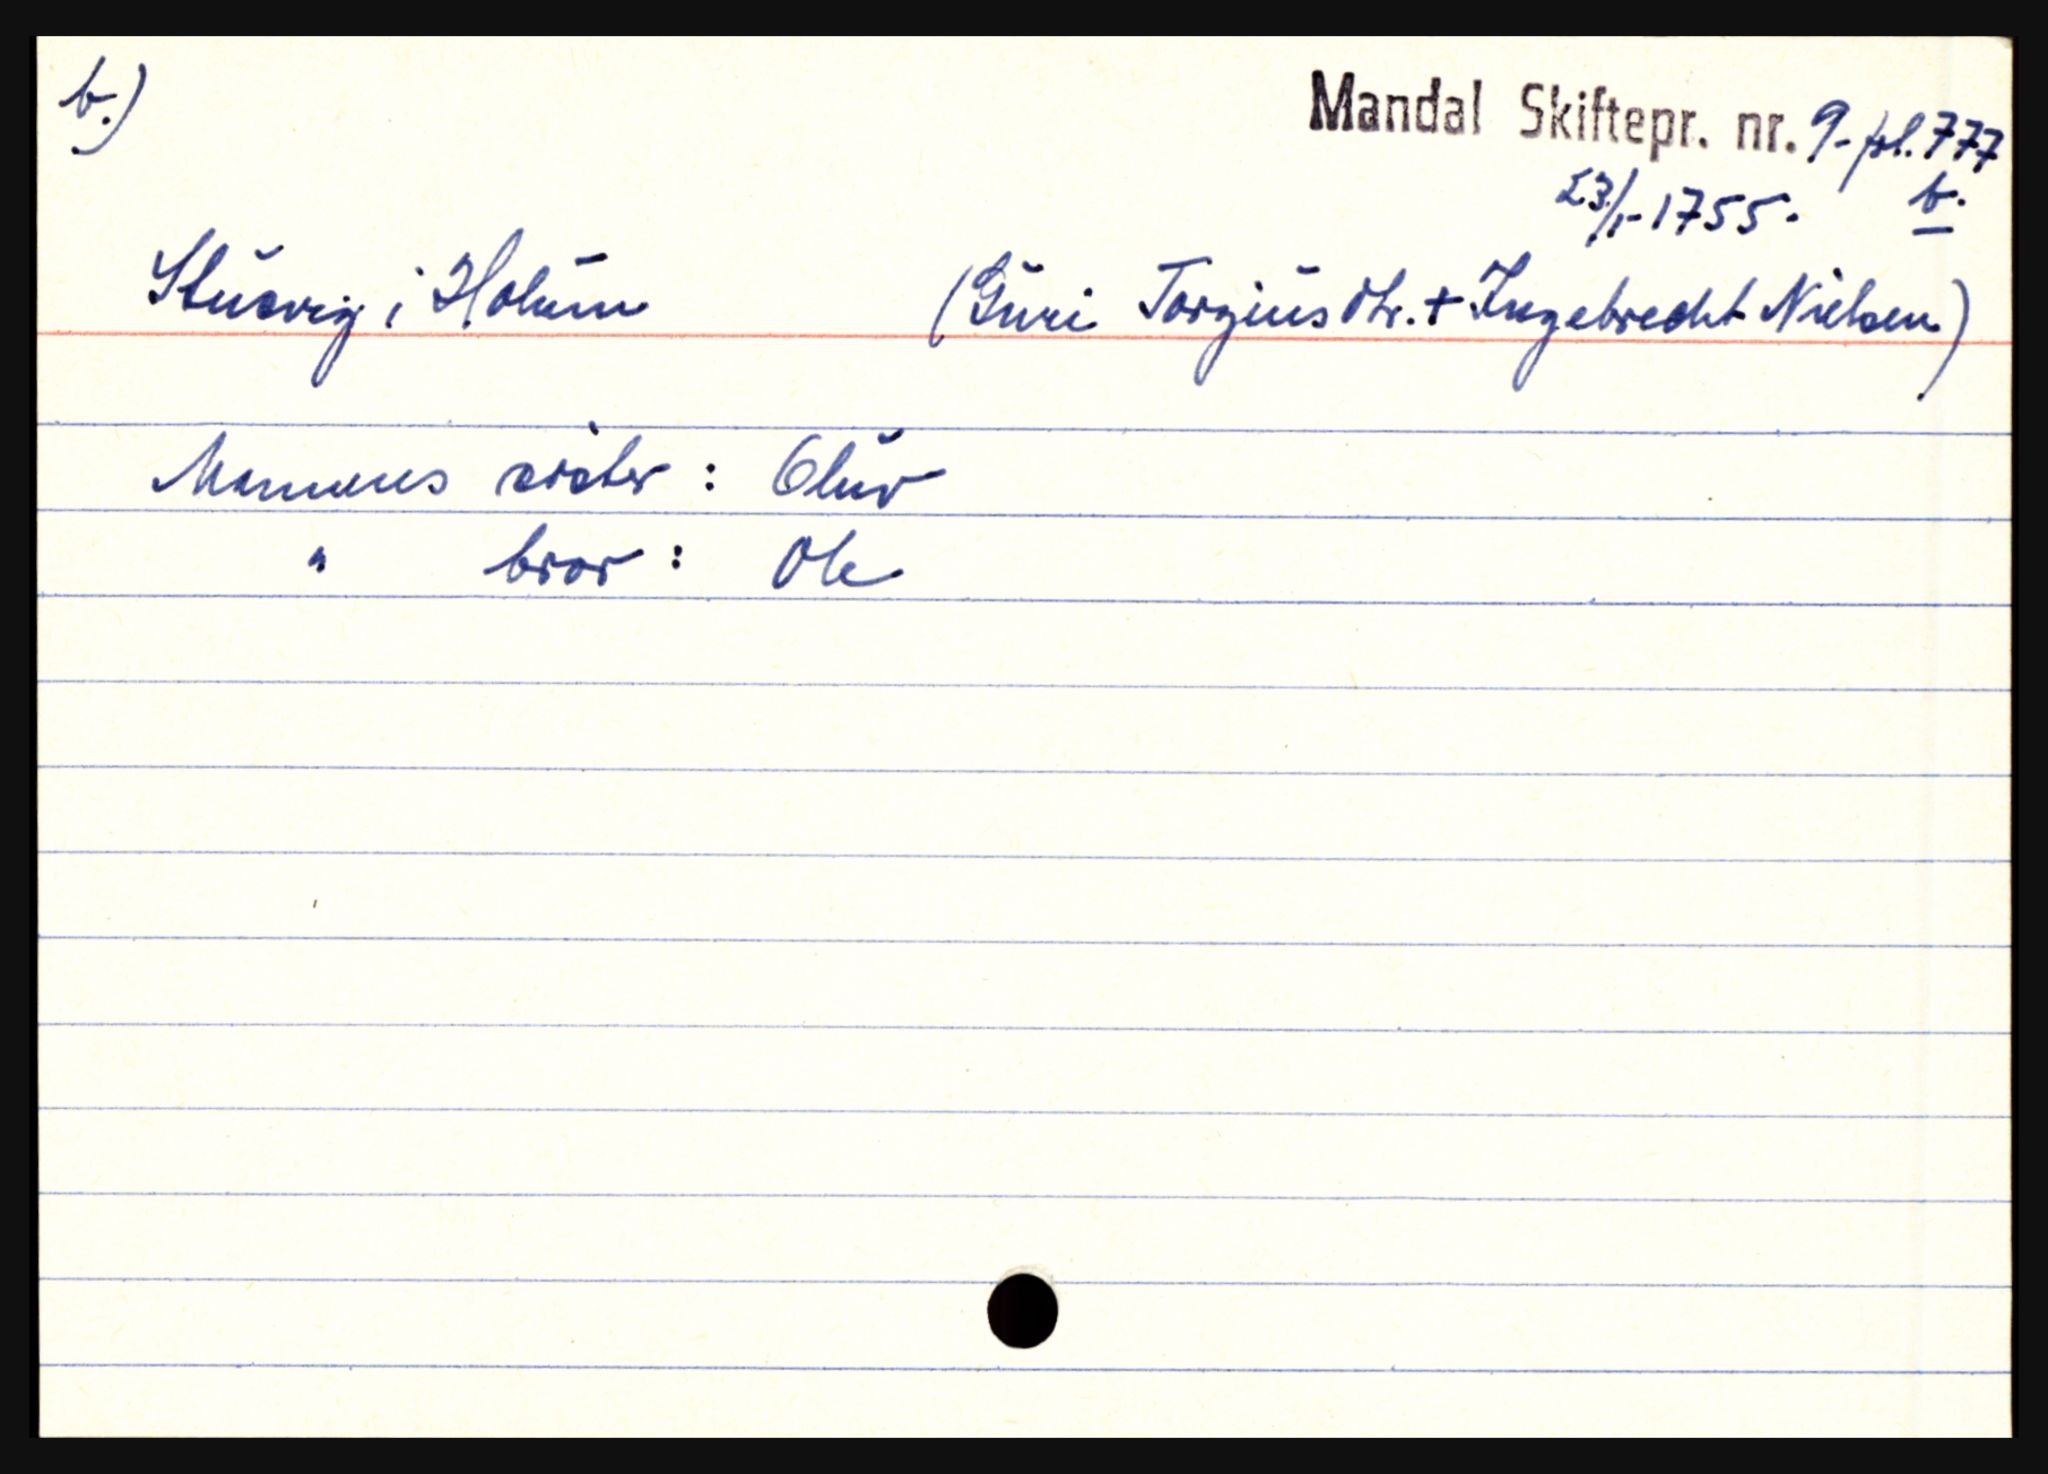 b.)
Mandal Skiftepr. nr. 9- fol. 777
23/1-1755. b.
Stusvig i Holum (Guri Torgiusdtr. + Ingebrecht Nielsen)
Mannens søster : Oluv
" bror : Ole